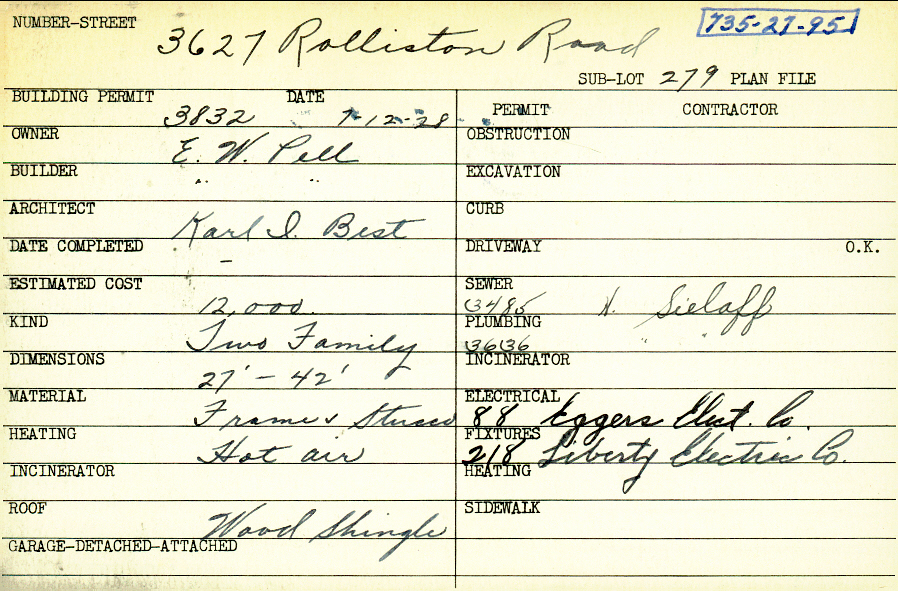 NUMBER-STREET 3627 Rolliston Road 735-27-95
SUB-LOT 279 PLAN FILE
BUILDING PERMIT 3832 DATE 7-12-28
PERMIT CONTRACTOR
OWNER E. W. Pell
OBSTRUCTION
BUILDER " "
EXCAVATION
ARCHITECT Karl I. Best
CURB
DATE COMPLETED -
DRIVEWAY O.K.
ESTIMATED COST 12,000.
SEWER 13485 H. Sielaff
KIND Two Family
PLUMBING 13636 " "
DIMENSIONS 27' - 42'
INCINERATOR
MATERIAL Frame & Stucco
ELECTRICAL 88 Eggers Elect. Co.
HEATING Hot air
FIXTURES 218 Liberty Electric Co.
INCINERATOR
HEATING
ROOF Wood Shingle
SIDEWALK
GARAGE-DETACHED-ATTACHED